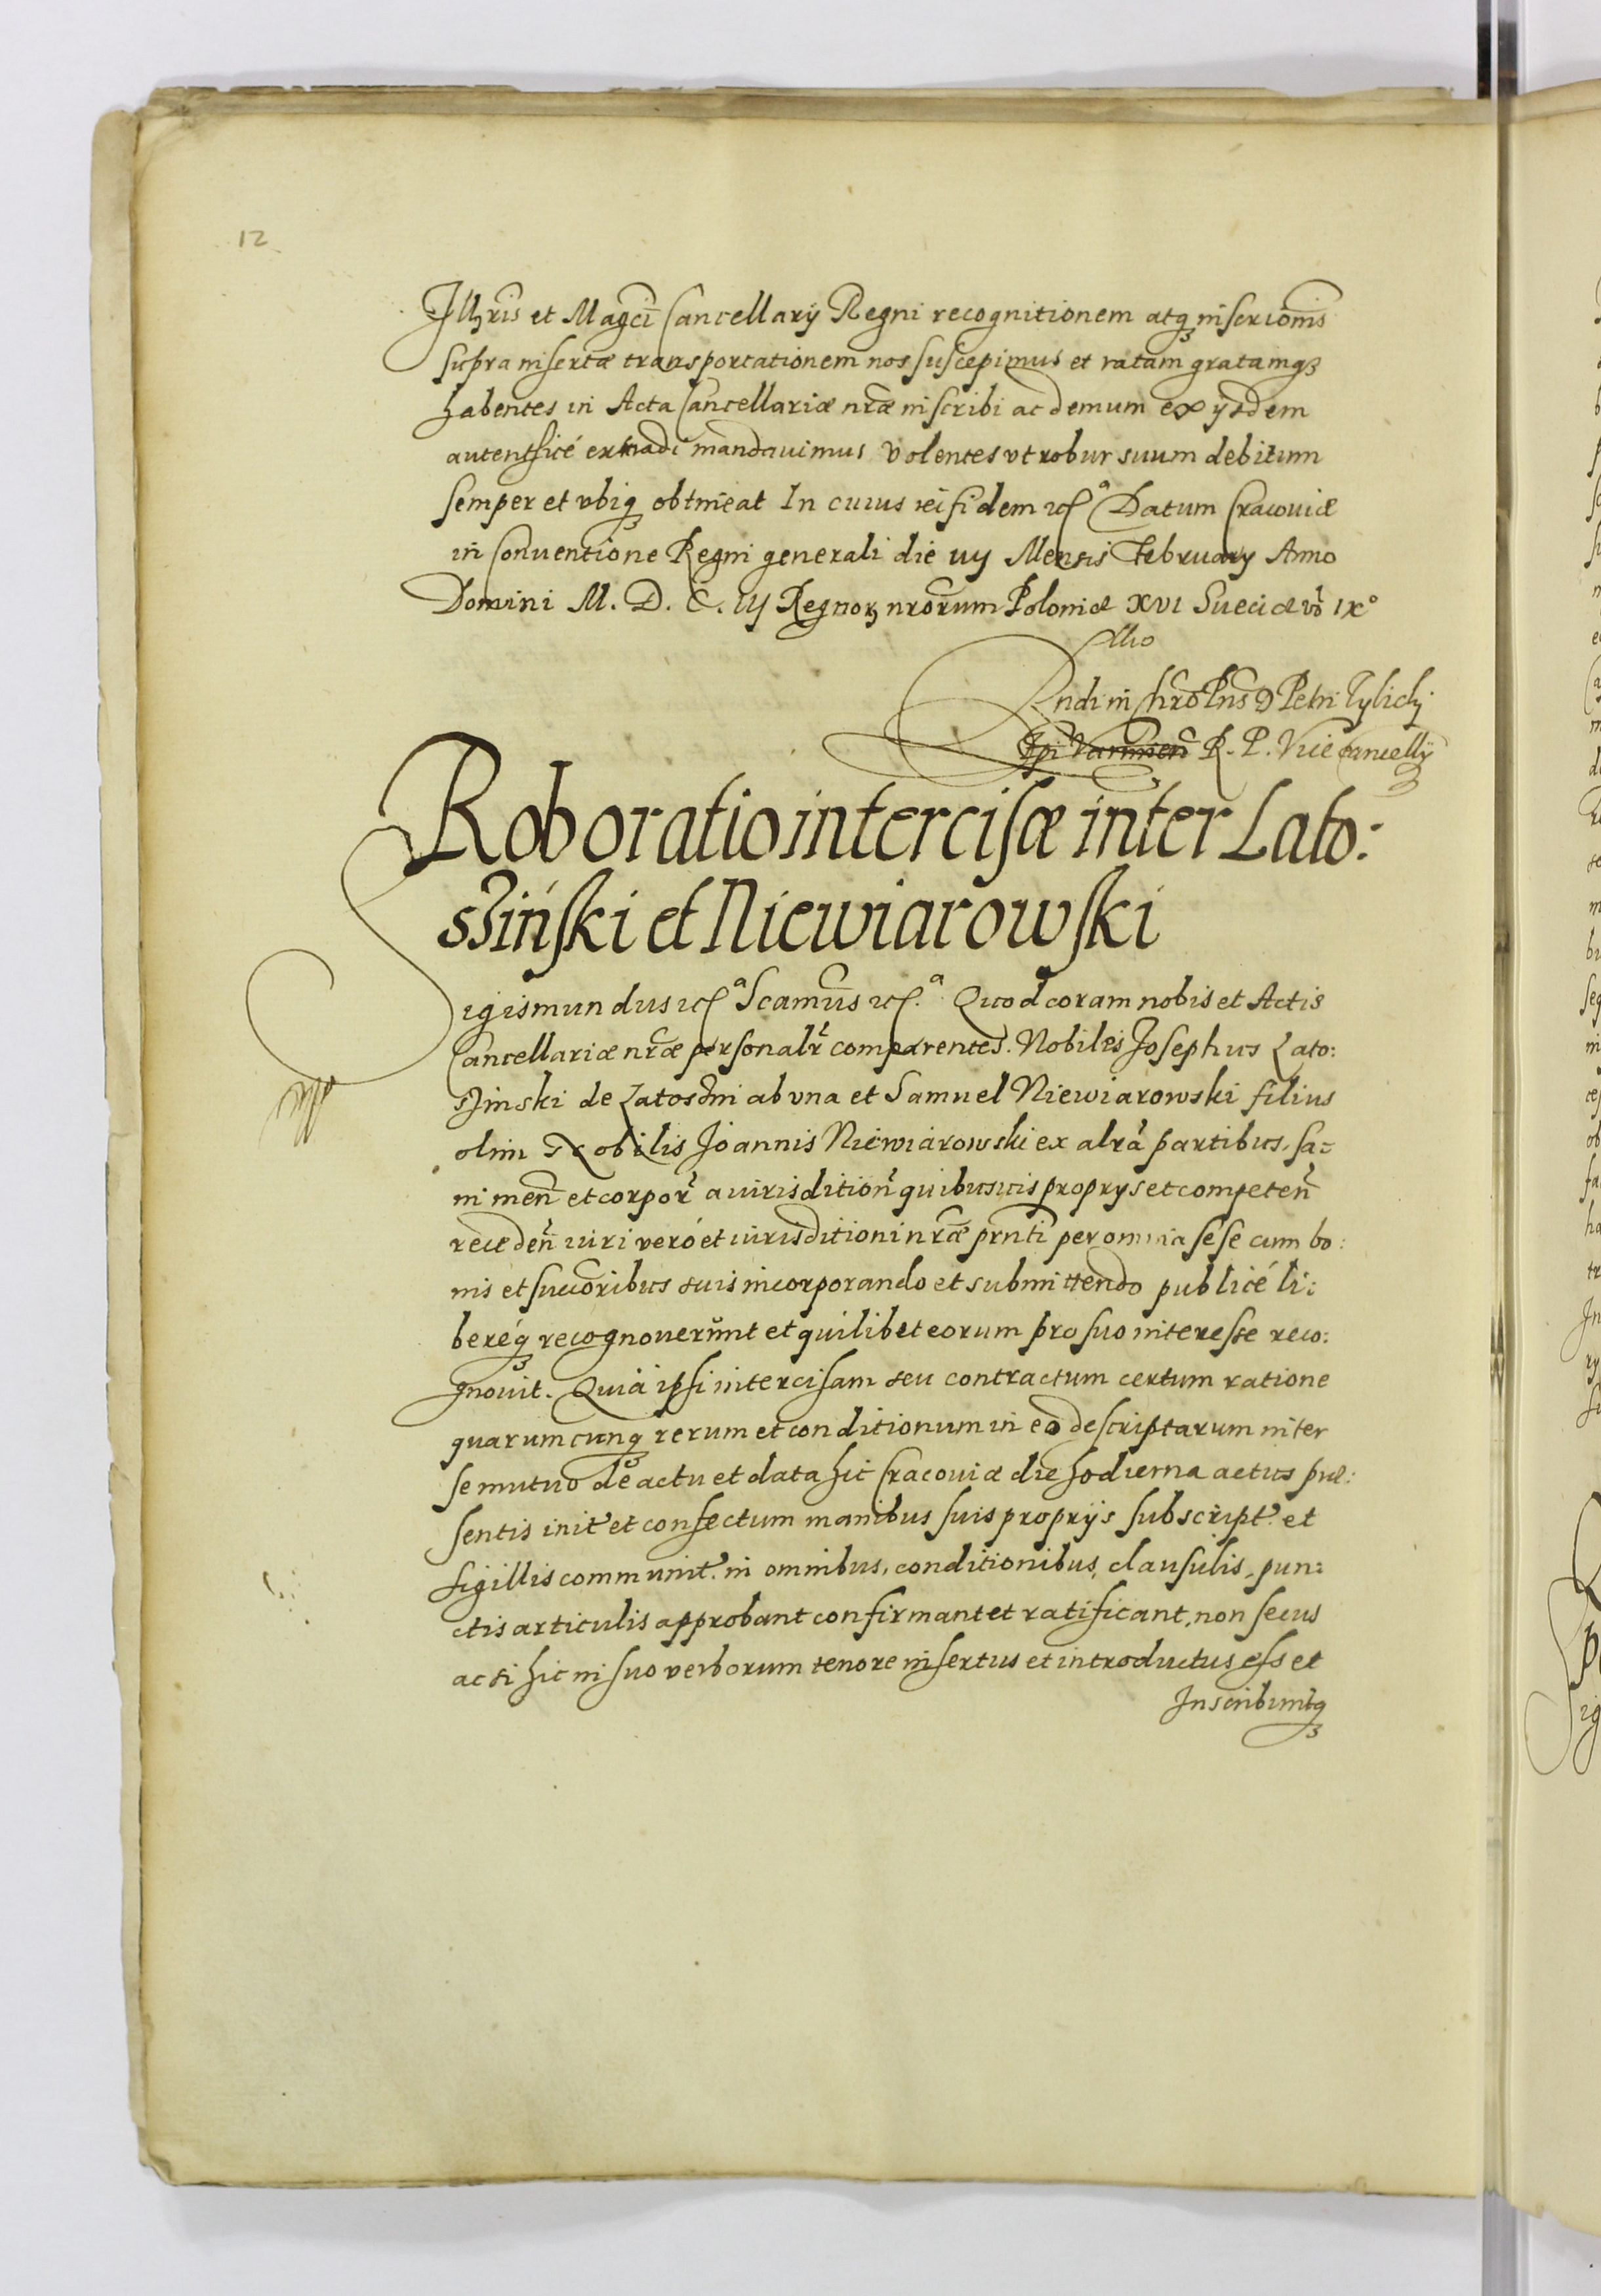 12
Illris et Magci Cancellarij Regni recognitionem atq inscrionis
supra insertæ transportationem nos suscepimus et ratam gratamq
habentes in Acta Cancellariæ nræ inscribi ac demum ex ijsdem
autenticé extradi mandauimus Volentes vt robur suum debitum
semper et vbiq obtineat In cuius rei fidem etc Datum Cracouiæ
in Conuentione Regni generali die iij Mensis February Anno
Domini M. D. C. iij Regnor nrorum Poloniæ XVI Sueciæ vo IXo
Rndi in Chro Pris D Petri Tylicky
Epi Varmien R. P. Vicecancelly
Roboratio intercisæ inter Lato:
sziński et Niewiarowski
Sigismundus etc Scamus etc. Quod coram nobis et Actis
Cancellariæ nræ personalr comparentes. Nobiles Josephus Lato:
szinski de Latoszin ab vna et Samuel Niewiarowski filius
olim Nobilis Joannis Niewiarowski ex alra partibus, sa=
ni men et corpor a iurisdition quibusuis proprys et competen
receden iuri veró et iurisditioni nræ prnti per omnia sese cum bo:
nis et succoribus suis incorporando et submittendo publicé li:
beréq recognouerunt et quilibet eorum pro suo interesse reco:
gnouit. Quia ipsi intercisam seu contractum certum ratione
quarumcunq rerum et conditionum in eo descriptarum inter
se mutuo de actu et data hic Cracouiæ die hodierna actus præ:
sentis init et confectum manibus suis proprijs subscript. et
sigillis communit. in omnibus, conditionibus, clausulis, pun:
ctis articulis approbant confirmant et ratificant, non secus
ac si hic in suo verborum tenore insertus et introductus esset
Inscribuntq